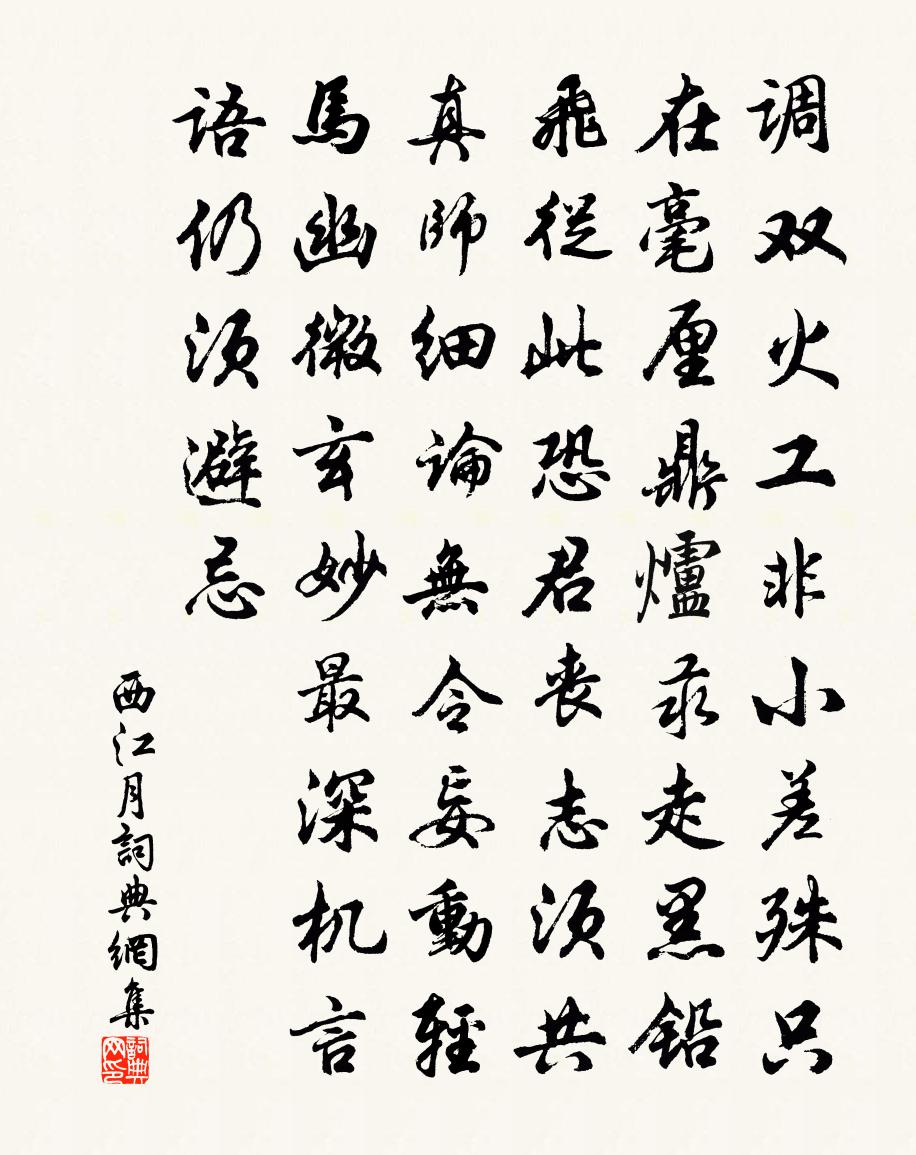 调双火工非小差殊只
在毫厘鼎爐汞走黑铅
飛從此恐君丧志須共
真師细論無令妄動輕
馬幽微玄妙最深机言
語仍須避忌
西江月詞典網集
詞典网印